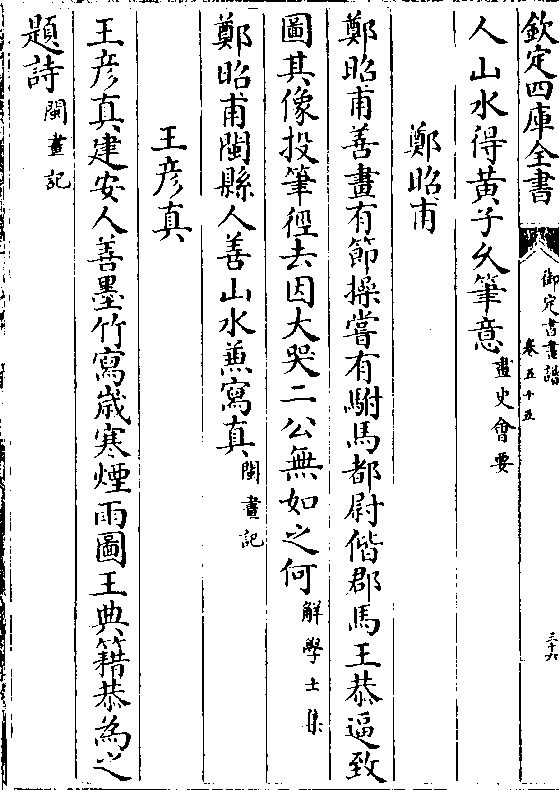 欽定四庫全書
御定書畫譜
卷五十五
三十六
人山水得黃子久筆意畫史會要
鄭昭甫
鄭昭甫善畫有節操嘗有駙馬都尉偕郡馬王恭逼致
圖其像投筆徑去因大哭二公無如之何解學士集
鄭昭甫閩縣人善山水兼寫真閩畫記
王彦真
王彦真建安人善墨竹寫歲寒煙雨圖王典籍恭為之
題詩閩畫記